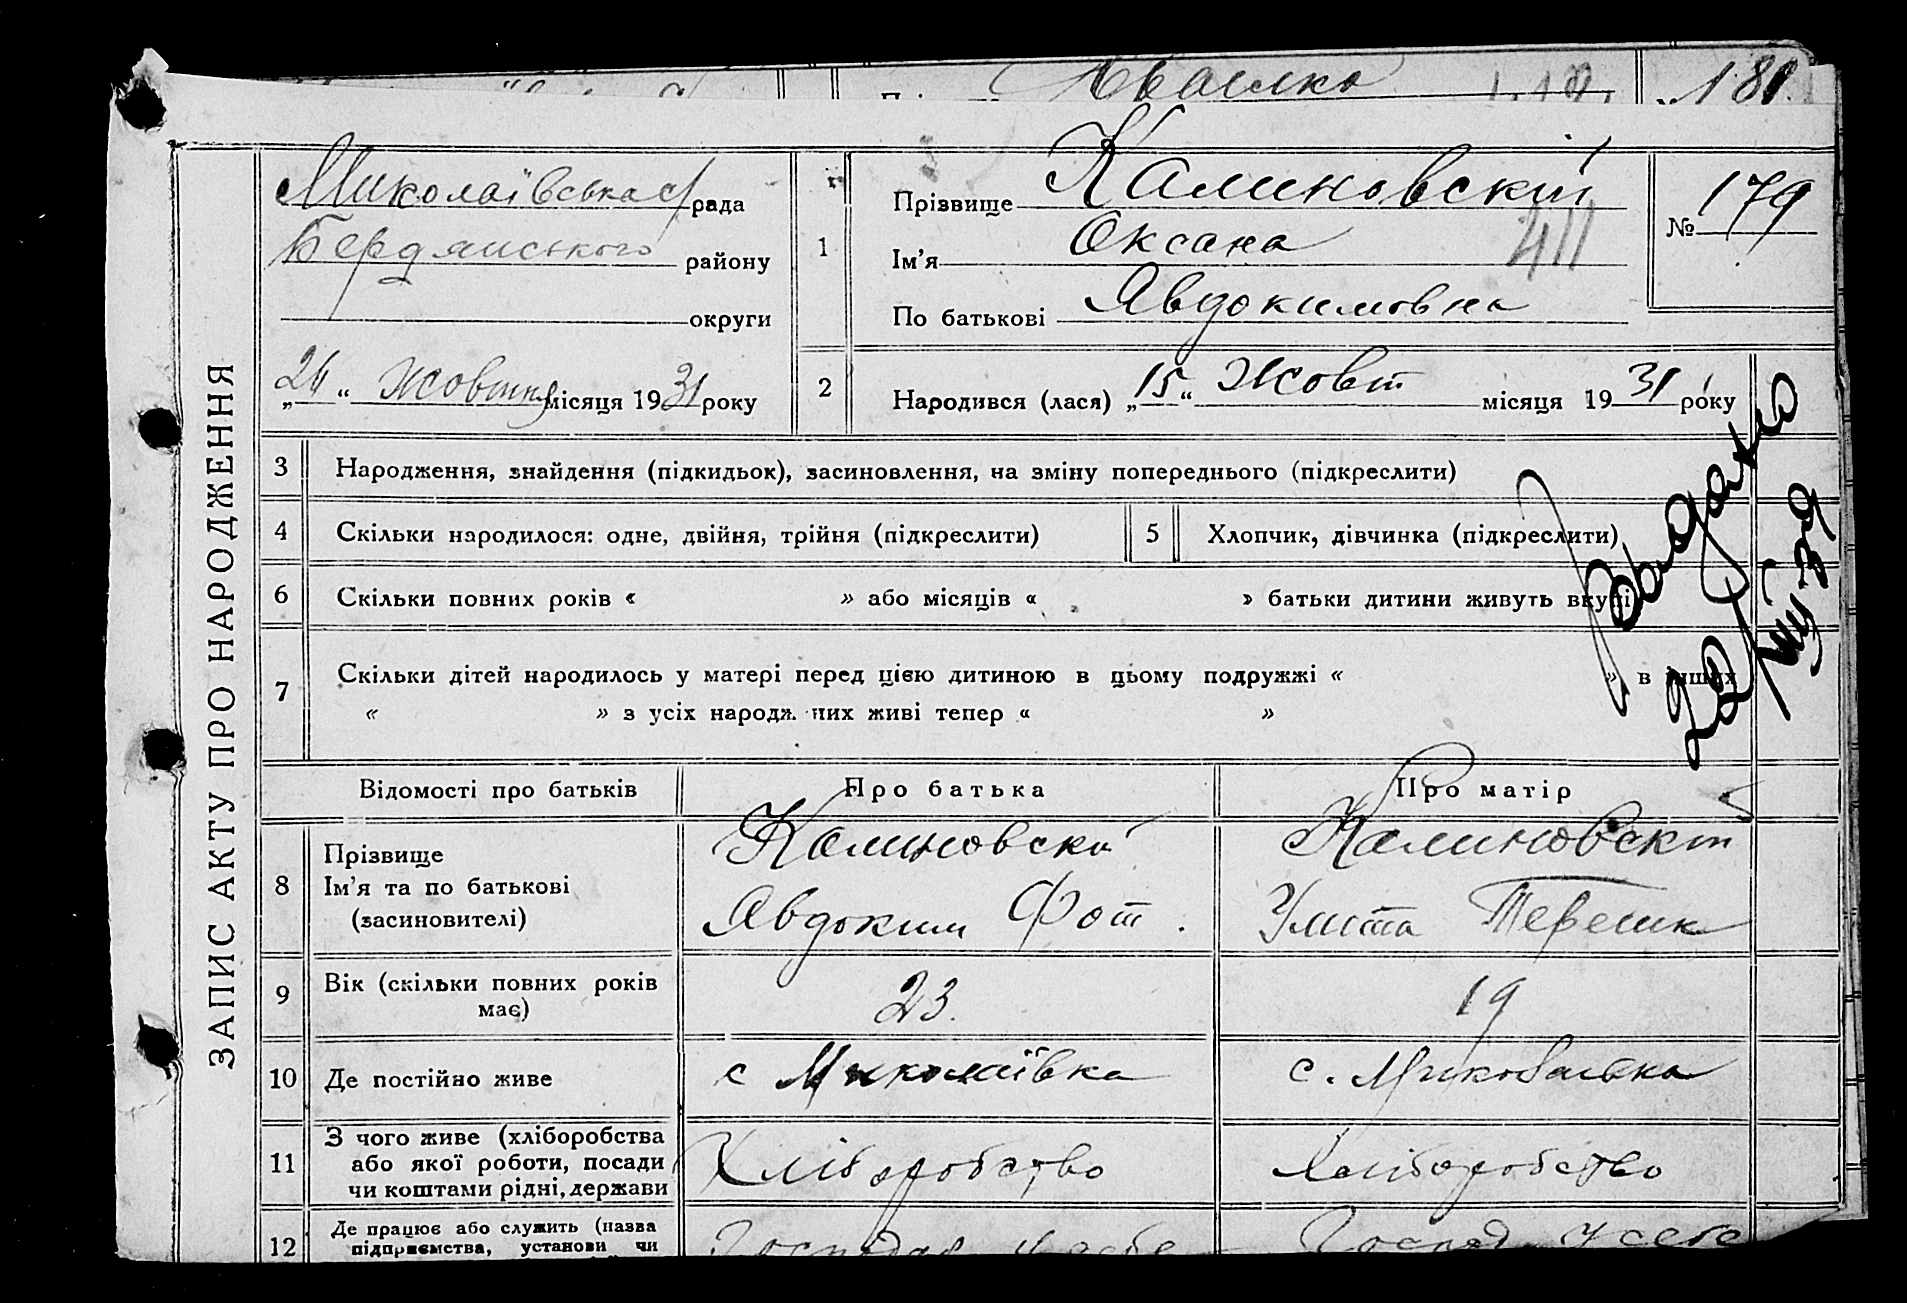 181
ЗАПИС АКТУ ПРО НАРОДЖЕННЯ
Миколаївська с/рада
Бердянського району
округи
„24“ Жовтня місяця 1931 року
1
Прізвище Калиновский
Ім'я Оксана
411
По батькові Явдокимовна
№ 179
2
Народився (лася) „15“ Жовт місяця 1931 року
3 Народження, знайдення (підкидьок), засиновлення, на зміну попереднього (підкреслити)
4 Скільки народилося: одне, двійня, трійня (підкреслити)
5 Хлопчик, дівчинка (підкреслити)
6 Скільки повних років « » або місяців « » батьки дитини живуть вкупі
7 Скільки дітей народилось у матері перед цією дитиною в цьому подружжі « » в інших
« » з усіх народж них живі тепер « »
Відомості про батьків Про батька Про матір
8 Прізвище
Ім'я та по батькові
(засиновителі)
Калиновский
Явдоким Фот.
Калиновскі
9 Вік (скільки повних років
має)
23. 19
10 Де постійно живе с Миколаївка с. Миколаївка
11 З чого живе (хліборобства
або якої роботи, посади
чи коштами рідні, держави
Хліборобство Хліборобство
12 Де працює або служить (назва
підприємства, установи чи